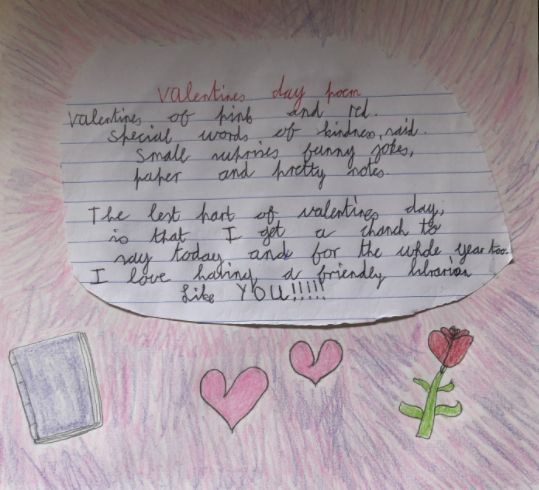 Valentines day poem
Valentines of pink and red.
Special words of kindness, said.
Small suprises funny jokes,
paper and pretty notes.
The best part of valentines day,
is that I get a chanch to
say today and for the whole year too.
I love having a friendly librarian
Like YOU!!!!!